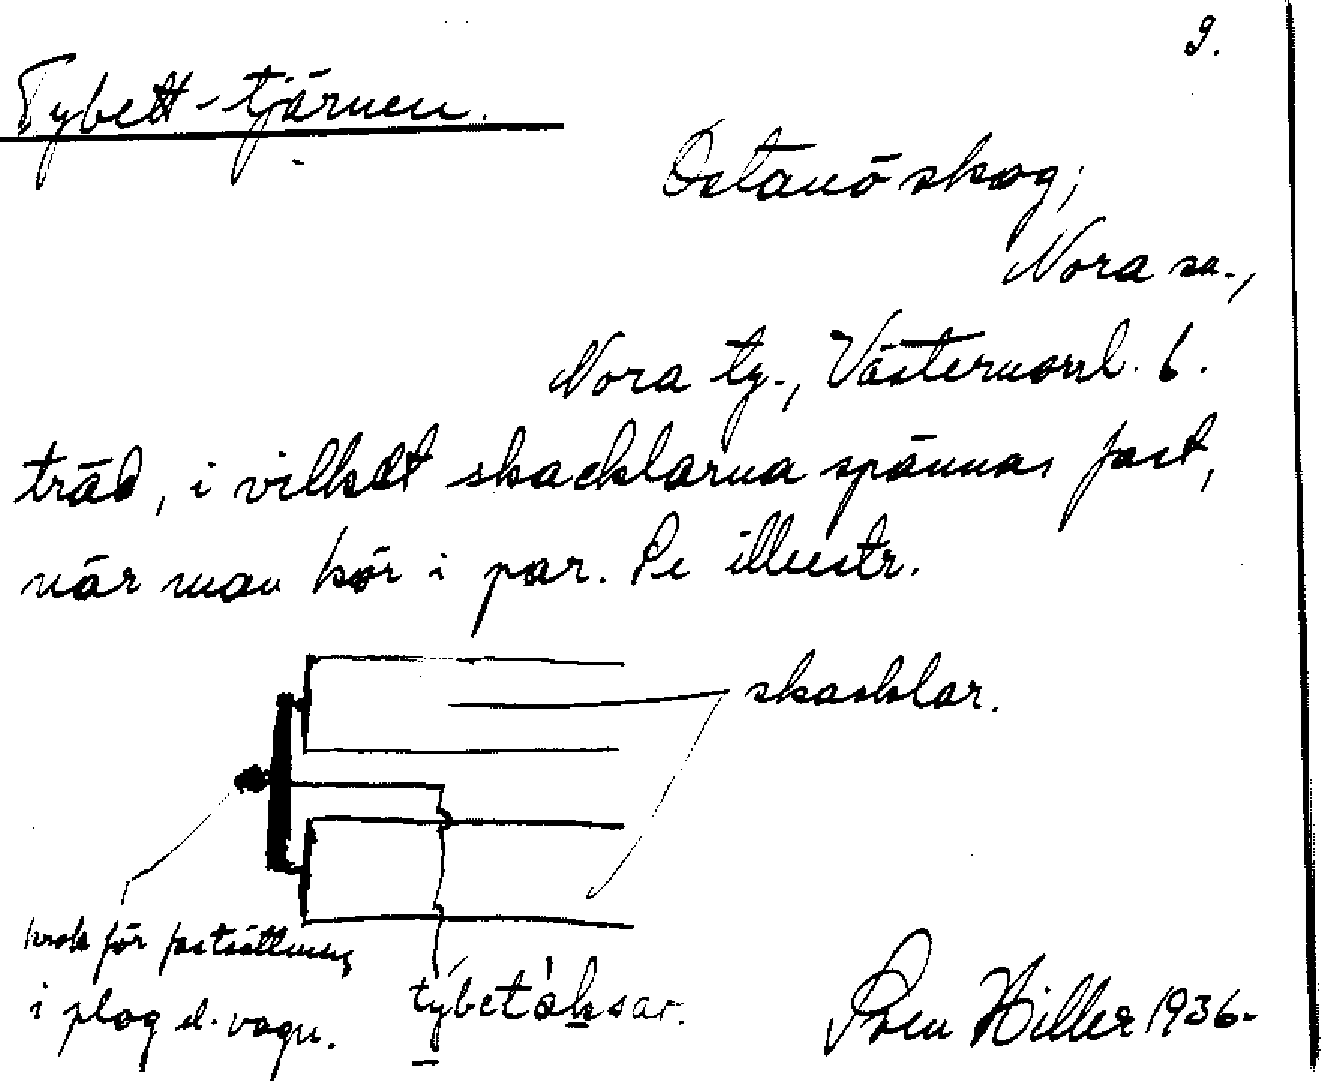 9.
Tybett-tjärnen.
Östanö skog,
Nora sn.,
Nora tg., Västernorrl. l.
träd, i vilket skacklarna spännas fast,
när man kör i par. Se illustr.
skacklar.
krok för fastsättning
i plog el. vagn.
tybetåksar.
Sven Hiller 1936.